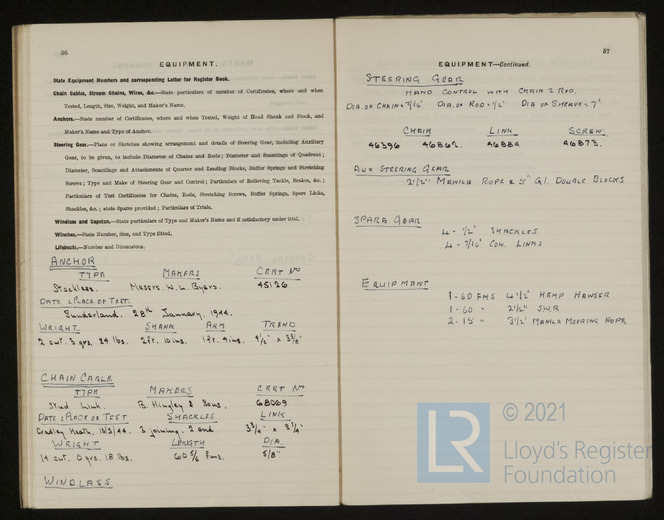 56
EQUIPMENT.
State Equipment Numbers and corresponding Letter for Register Book.
Chain Cables, Stream Chains, Wires, &c.—State particulars of number of Certificates, where and when
Tested, Length, Size, Weight, and Maker's Name.
Anchors.—State number of Certificates, where and when Tested, Weight of Head Shank and Stock, and
Maker's Name and Type of Anchor.
Steering Gear.—Plans or Sketches showing arrangement and details of Steering Gear, including Auxiliary
Gear, to be given, to include Diameter of Chains and Rods; Diameter and Scantlings of Quadrant;
Diameter, Scantlings and Attachments of Quarter and Leading Blocks, Buffer Springs and Stretching
Screws; Type and Make of Steering Gear and Control; Particulars of Relieving Tackle, Brakes, &c.;
Particulars of Test Certificates for Chains, Rods, Stretching Screws, Buffer Springs, Spare Links,
Shackles, &c.; state Spares provided; Particulars of Trials.
Windlass and Capstan.—State particulars of Type and Maker's Name and if satisfactory under trial.
Winches.—State Number, Size, and Type fitted.
Lifeboats.—Number and Dimensions.
ANCHOR
TYPE MAKERS CERT No
Stockless. Messrs. W. L. Byers. 45126
DATE & PLACE OF TEST.
Sunderland. 28th January, 1944.
WEIGHT SHANK ARM TREND
2 cwt. 3 qrs. 24 lbs. 2ft. 10 ins. 1ft. 4 ins.
CHAIN CABLE
TYPE MAKERS CERT No
Stud Link. B. Hingley & Sons. 68069
DATE & PLACE OF TEST SHACKLES LINK
Cradley Heath, 3 joining, 2 end. 3¾" x 2¼"
WEIGHT LENGTH DIA.
14 cwt. 0 qrs. 18 lbs. 60 5/6 fms. 5/8"
WINDLASS
57
EQUIPMENT—Continued.
STEERING GEAR
HAND CONTROL WITH CHAIN & ROD.
DIA. OF CHAIN = 7/16" DIA. OF ROD = ½" DIA OF SHEAVE = 7"
CHAIN LINK SCREW
46396 46862. 46886 46873.
AUX STEERING GEAR
2½" MANILA ROPE & 5" G.I. DOUBLE BLOCKS
SPARE GEAR
4 - ½" SHACKLES
4 - 7/16" CON. LINKS
EQUIPMENT
1 - 60 FMS 4½" HEMP HAWSER
1 - 60 " 2½" S.W.R
2 - 15 " 3½" MANILA MOORING ROPE
LR © 2021
Lloyd's Register
Foundation